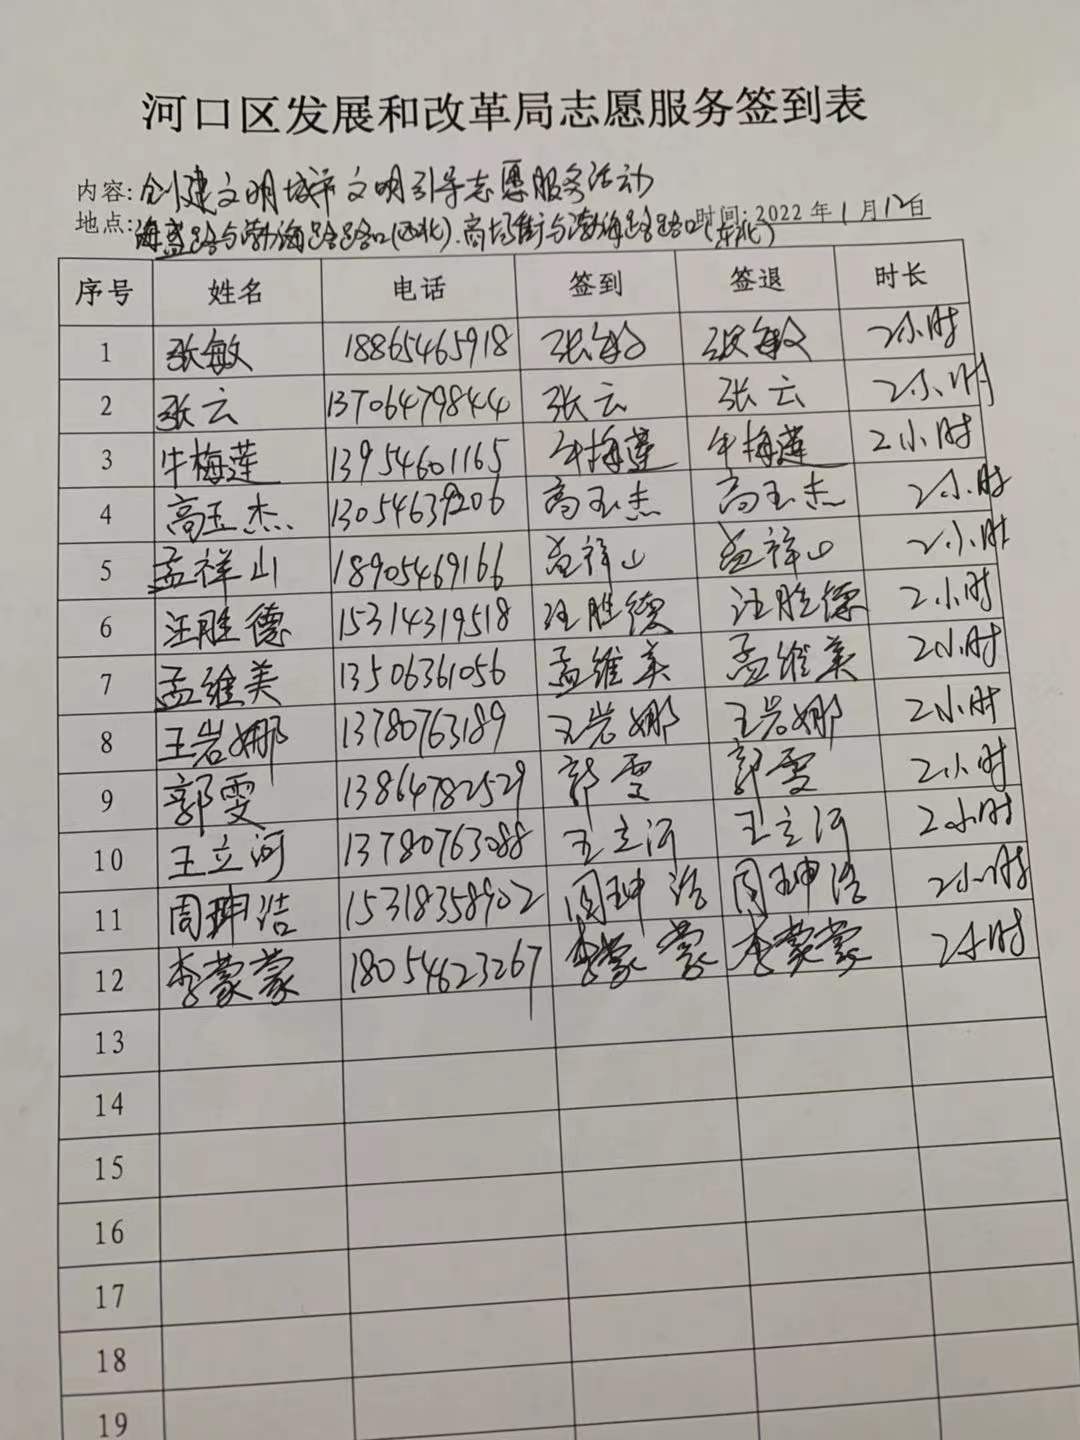 河口区发展和改革局志愿服务签到表
内容:创建文明城市文明引导志愿服务活动
地点:海盛路与渤海路路口(西北).商场街与渤海路路口(东北) 时间:2022年1月12日
序号 姓名 电话 签到 签退 时长
1 张敏 18865465918 张敏 张敏 2小时
2 张云 13706479844 张云 张云 2小时
3 牛梅莲 13954601165 牛梅莲 牛梅莲 2小时
4 高玉杰 13054639206 高玉杰 高玉杰 2小时
5 孟祥山 18905469166 孟祥山 孟祥山 2小时
6 汪胜德 15314319518 汪胜德 汪胜德 2小时
7 孟维美 13506361056 孟维美 孟维美 2小时
8 王岩娜 13780763189 王岩娜 王岩娜 2小时
9 郭雯 13864782529 郭雯 郭雯 2小时
10 王立河 13780763088 王立河 王立河 2小时
11 周珅浩 15318358902 周珅浩 周珅浩 2小时
12 李蒙蒙 18054623267 李蒙蒙 李蒙蒙 2小时
13
14
15
16
17
18
19